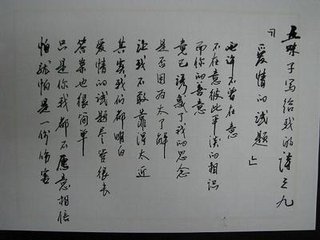 五味子写给我的诗之九
『爱情的试题』
也许不曾在意
不在意彼此平淡的相识
而你的善意
竟已诱惑了我的思念
是否因为太了解
让我不敢靠得太近
其实我们都明白
爱情的试题尽管很长
答案也很简单
只是你我都不愿意相信
怕就怕是一份伤害